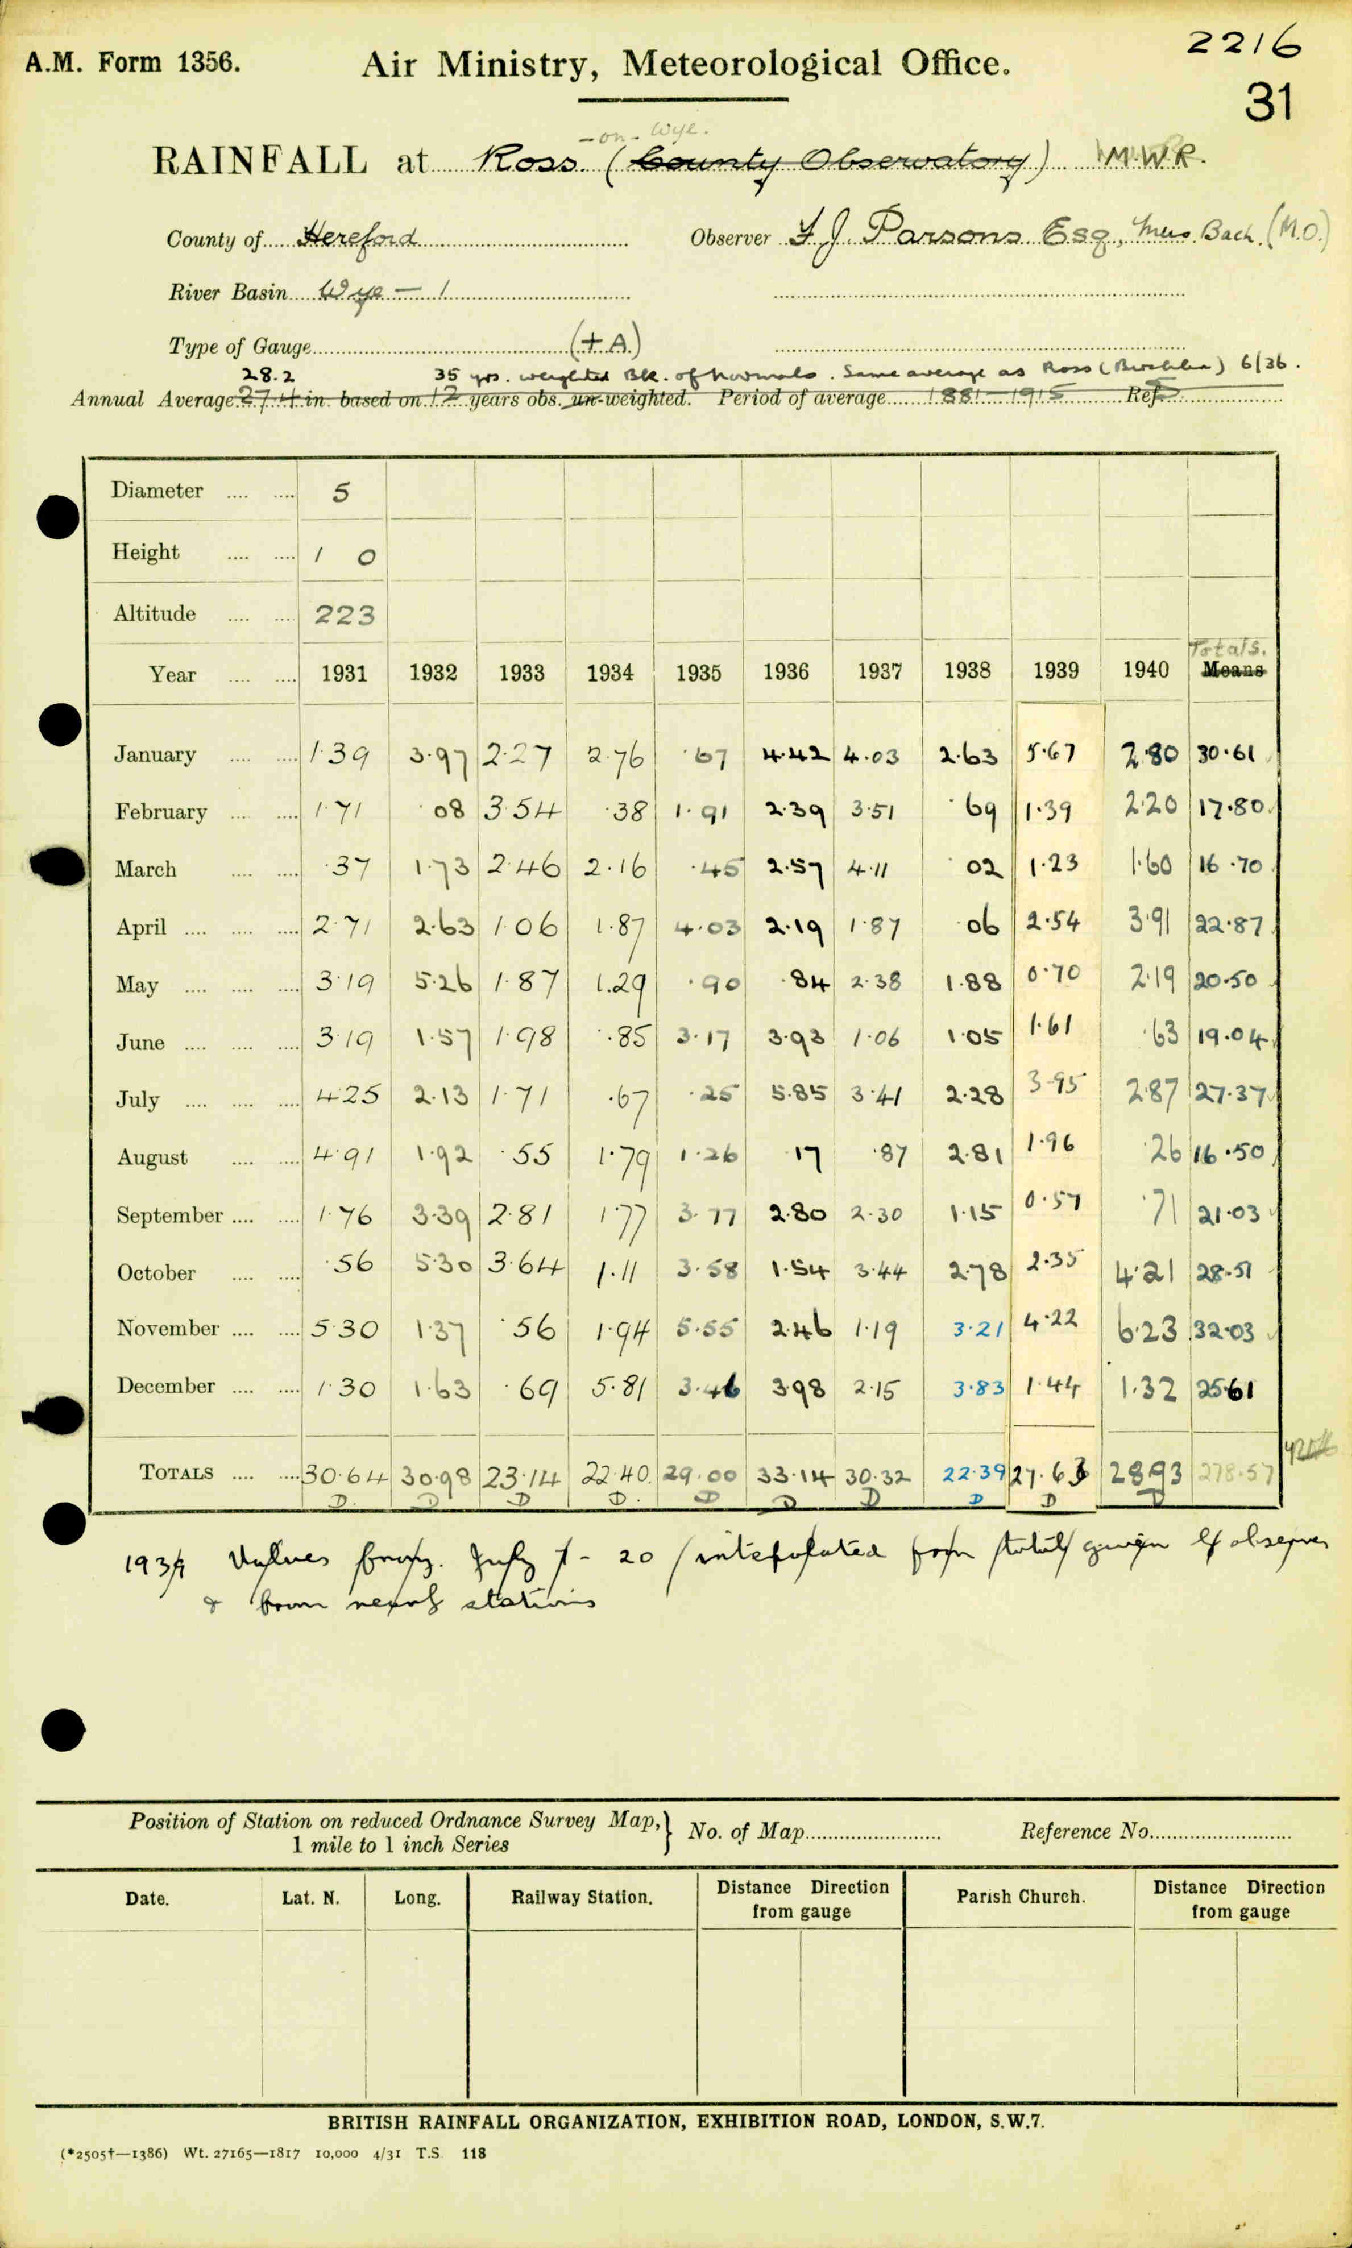 2216
A.M. Form 1356. Air Ministry, Meteorological Office.
31
-on- Wye.
RAINFALL at Ross (County Observatory) M.W.R.
County of Hereford Observer F. J. Parsons Esq, Back (M.O.)
River Basin Wye — 1
Type of Gauge (+A)
28.2 35 yrs. weighted Bk. of Normals. Same average as Ross ( ) 6/36.
Annual Average 27.4 in. based on 12 years obs. un-weighted. Period of average 1881–1915 Ref. 5
Diameter .... .... 5
Height .... .... 1 0
Altitude .... .... 223
Totals.
Year .... .... 1931 1932 1933 1934 1935 1936 1937 1938 1939 1940 Means
January .... .... 1·39 3·97 2·27 2·76 ·67 4·42 4·03 2·63 5·67 2·80 30·61
February .... .... 1·71 ·08 3·54 ·38 1·91 2·39 3·51 ·69 1·39 2·20 17·80
March .... .... ·37 1·73 2·46 2·16 ·45 2·57 4·11 ·02 1·23 1·60 16·70
April .... .... .... 2·71 2·63 1·06 1·87 4·03 2·19 1·87 ·06 2·54 3·91 22·87
May .... .... .... 3·19 5·26 1·87 1·29 ·90 ·84 2·38 1·88 0·70 2·19 20·50
June .... .... .... 3·19 1·57 1·98 ·85 3·17 3·93 1·06 1·05 1·61 ·63 19·04
July .... .... .... 4·25 2·13 1·71 ·67 ·25 5·85 3·41 2·28 3·95 2·87 27·37
August .... .... 4·91 1·92 ·55 1·79 1·26 ·17 ·87 2·81 1·96 ·26 16·50
September .... .... 1·76 3·39 2·81 1·77 3·77 2·80 2·30 1·15 0·57 ·71 21·03
October .... .... ·56 5·30 3·64 1·11 3·58 1·54 3·44 2·78 2·35 4·21 28·51
November .... .... 5·30 1·37 ·56 1·94 5·55 2·46 1·19 3·21 4·22 6·23 32·03
December .... .... 1·30 1·63 ·69 5·81 3·46 3·98 2·15 3·83 1·44 1·32 25·61
TOTALS .... .... 30·64 30·98 23·14 22·40 29·00 33·14 30·32 22·39 27·63 28·93 278·57
D D D D D D D D D D
1939 Values July 1 - 20 interpolated from totals given by observer
& from nearby stations
Position of Station on reduced Ordnance Survey Map,} No. of Map Reference No.
1 mile to 1 inch Series
Date. Lat. N. Long. Railway Station. Distance Direction from gauge Parish Church. Distance Direction from gauge
BRITISH RAINFALL ORGANIZATION, EXHIBITION ROAD, LONDON, S.W.7.
(*2505†—1386) Wt. 27165—1817 10,000 4/31 T.S. 118